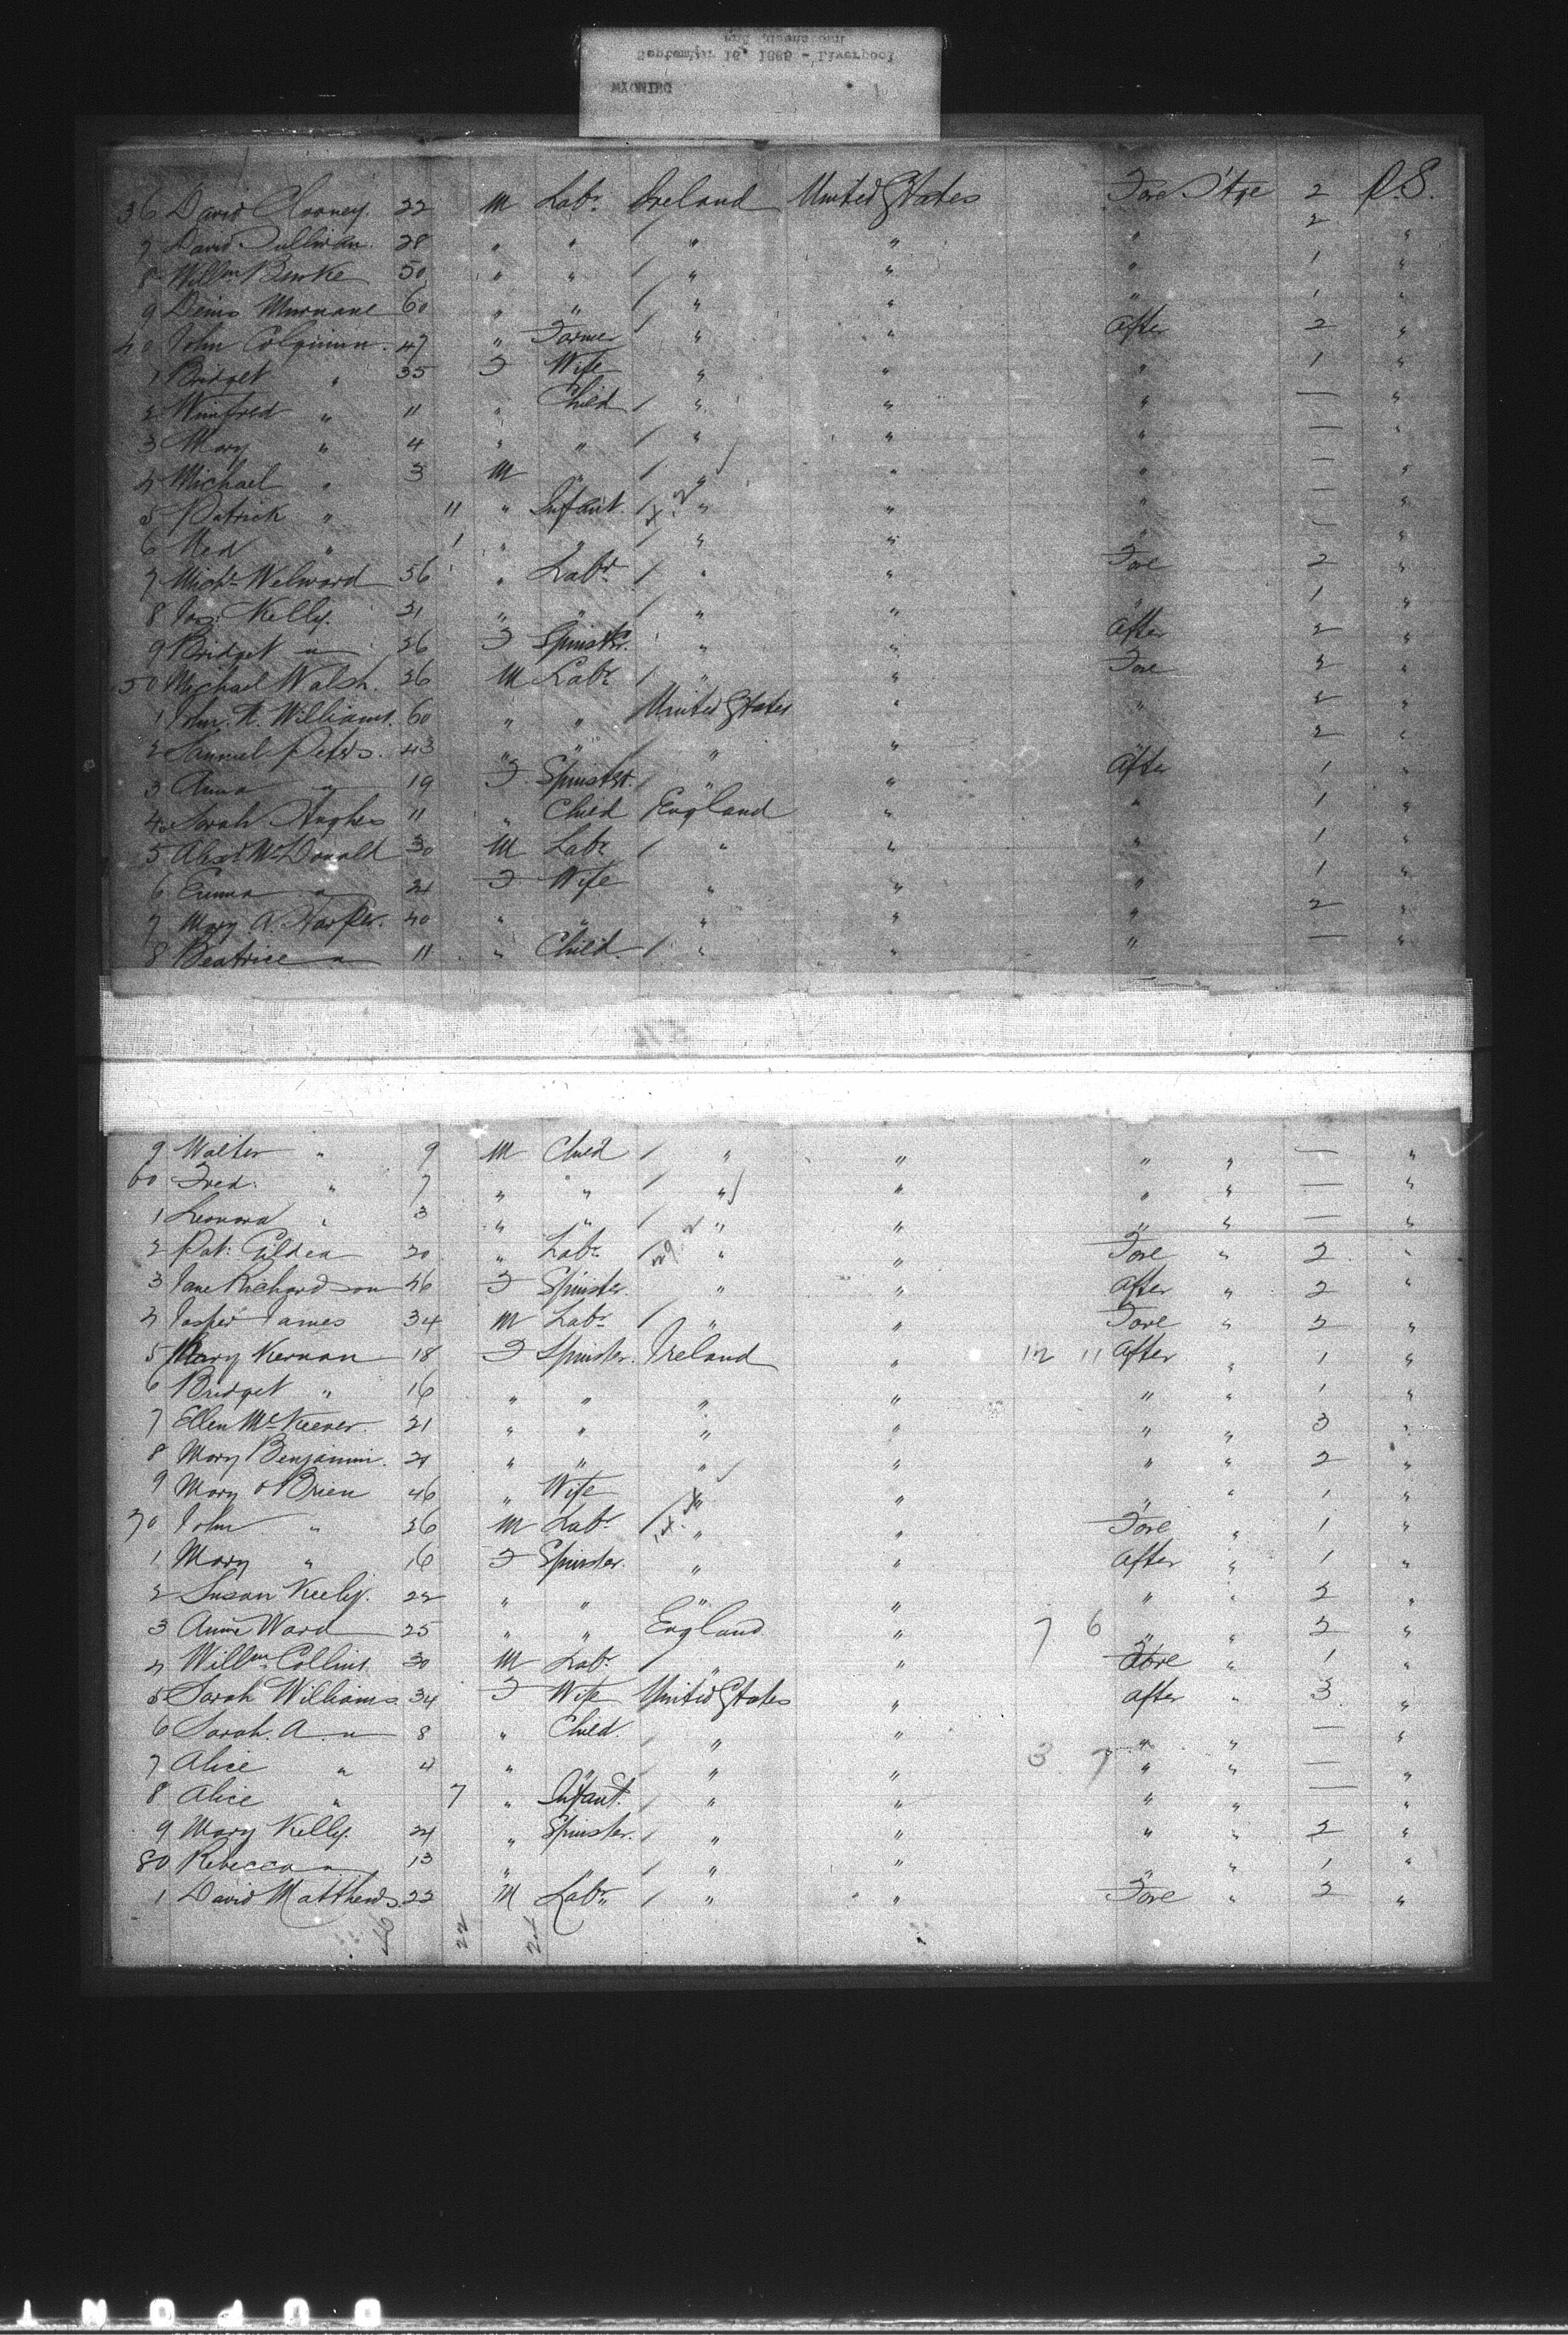 WYOMING
September 16, 1886 - Liverpool
and Queenstown
36 David Clooney. 22 M Labr. Ireland United States Fore S'tge 2 P.S.
7 David Sullivan. 28 " " / " " " 2 "
8 Willm Burke 50 " " / " " " 1 "
9 Denis Murnane 60 " " / " " " 1 "
40 John Colgimun. 47 " Farmer / " " After 2 "
1 Bridget " 35 F Wife " " " 1 "
2 Winifred " 11 " Child / " " " — "
3 Mary " 4 " " / " " " — "
4 Michael " 3 M " / " " " — "
5 Patrick " 11 " Infant. / " " " — "
6 Ned " 1 " " / " " " — "
7 Michl. Welward 56 " Labr. / " " Fore 2 "
8 Jas. Kelly. 21 " " / " " " 1 "
9 Bridget " 26 F Spinster. / " " After 2 "
50 Michael Walsh. 26 M Labr. / " " Fore 2 "
1 John. R. Williams. 60 " " United States " " 2 "
2 Samuel Peters. 43 " " / " " " 2 "
3 Anna " 19 F Spinster. / " " After 1 "
4 Sarah Hughes 11 " Child England " " 1 "
5 Alexr McDonald 30 M Labr. / " " " 1 "
6 Emma " 24 F Wife " " " 1 "
7 Mary A. Harper. 40 " " " " " 2 "
8 Beatrice " 11 " Child. / " " " — "
9 Walter " 9 M Child / " " " " — "
60 Fred. " 7 " " / " " " " — "
1 Leonora " 3 " " / " " " " — "
2 Pat. Gildea 20 " Labr. / " " Fore " 2 "
3 Jane Richardson 46 F Spinster. " " After " 2 "
4 Jasper James 34 M Labr. / " " Fore " 2 "
5 Mary Kernan 18 F Spinster. Ireland " 12 11 After " 1 "
6 Bridget " 16 " " " " " " 1 "
7 Ellen McKeever. 21 " " " " " " 3 "
8 Mary Benjamin. 21 " " " " " " 2 "
9 Mary O'Brien 46 " Wife " " " " 1 "
70 John " 26 M Labr. / " " Fore " 1 "
1 Mary " 16 F Spinster. " " After " 1 "
2 Susan Keely. 22 " " " " " " 2 "
3 Annie Ward 25 " " England. " 7 6 " " 2 "
4 Willm Collins 30 M Labr. / " " Fore " 1 "
5 Sarah Williams 34 F Wife United States " After " 3 "
6 Sarah. A. " 8 " Child. / " " " " — "
7 Alice " 4 " " / " " 3 7 " " — "
8 Alice " 7 " Infant. / " " " " — "
9 Mary Kelly. 24 " Spinster. / " " " " 2 "
80 Rebecca " 13 " " / " " " " 1 "
1 David Matthews 22 M Labr. / " " Fore " 2 "